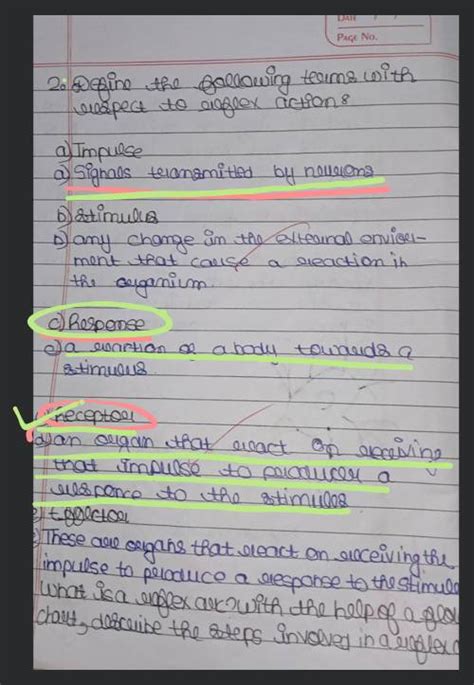 DATE / /
PAGE NO.
2. Define the following terms with
respect to reflex action:
a) Impulse
a) Signals transmitted by neurons
b) Stimulus
b) any change in the external environ-
ment that cause a reaction in
the organism.
c) Response
c) a reaction of a body towards a
stimulus.
d) Receptor
d) an organ that react on receiving
that impulse to producer a
response to the stimulus
e) Effector
e) These are organs that react on receiving the
impulse to produce a response to the stimulu
What is a reflex arc? with the help of a flow
chart, describe the steps involved in a reflex a